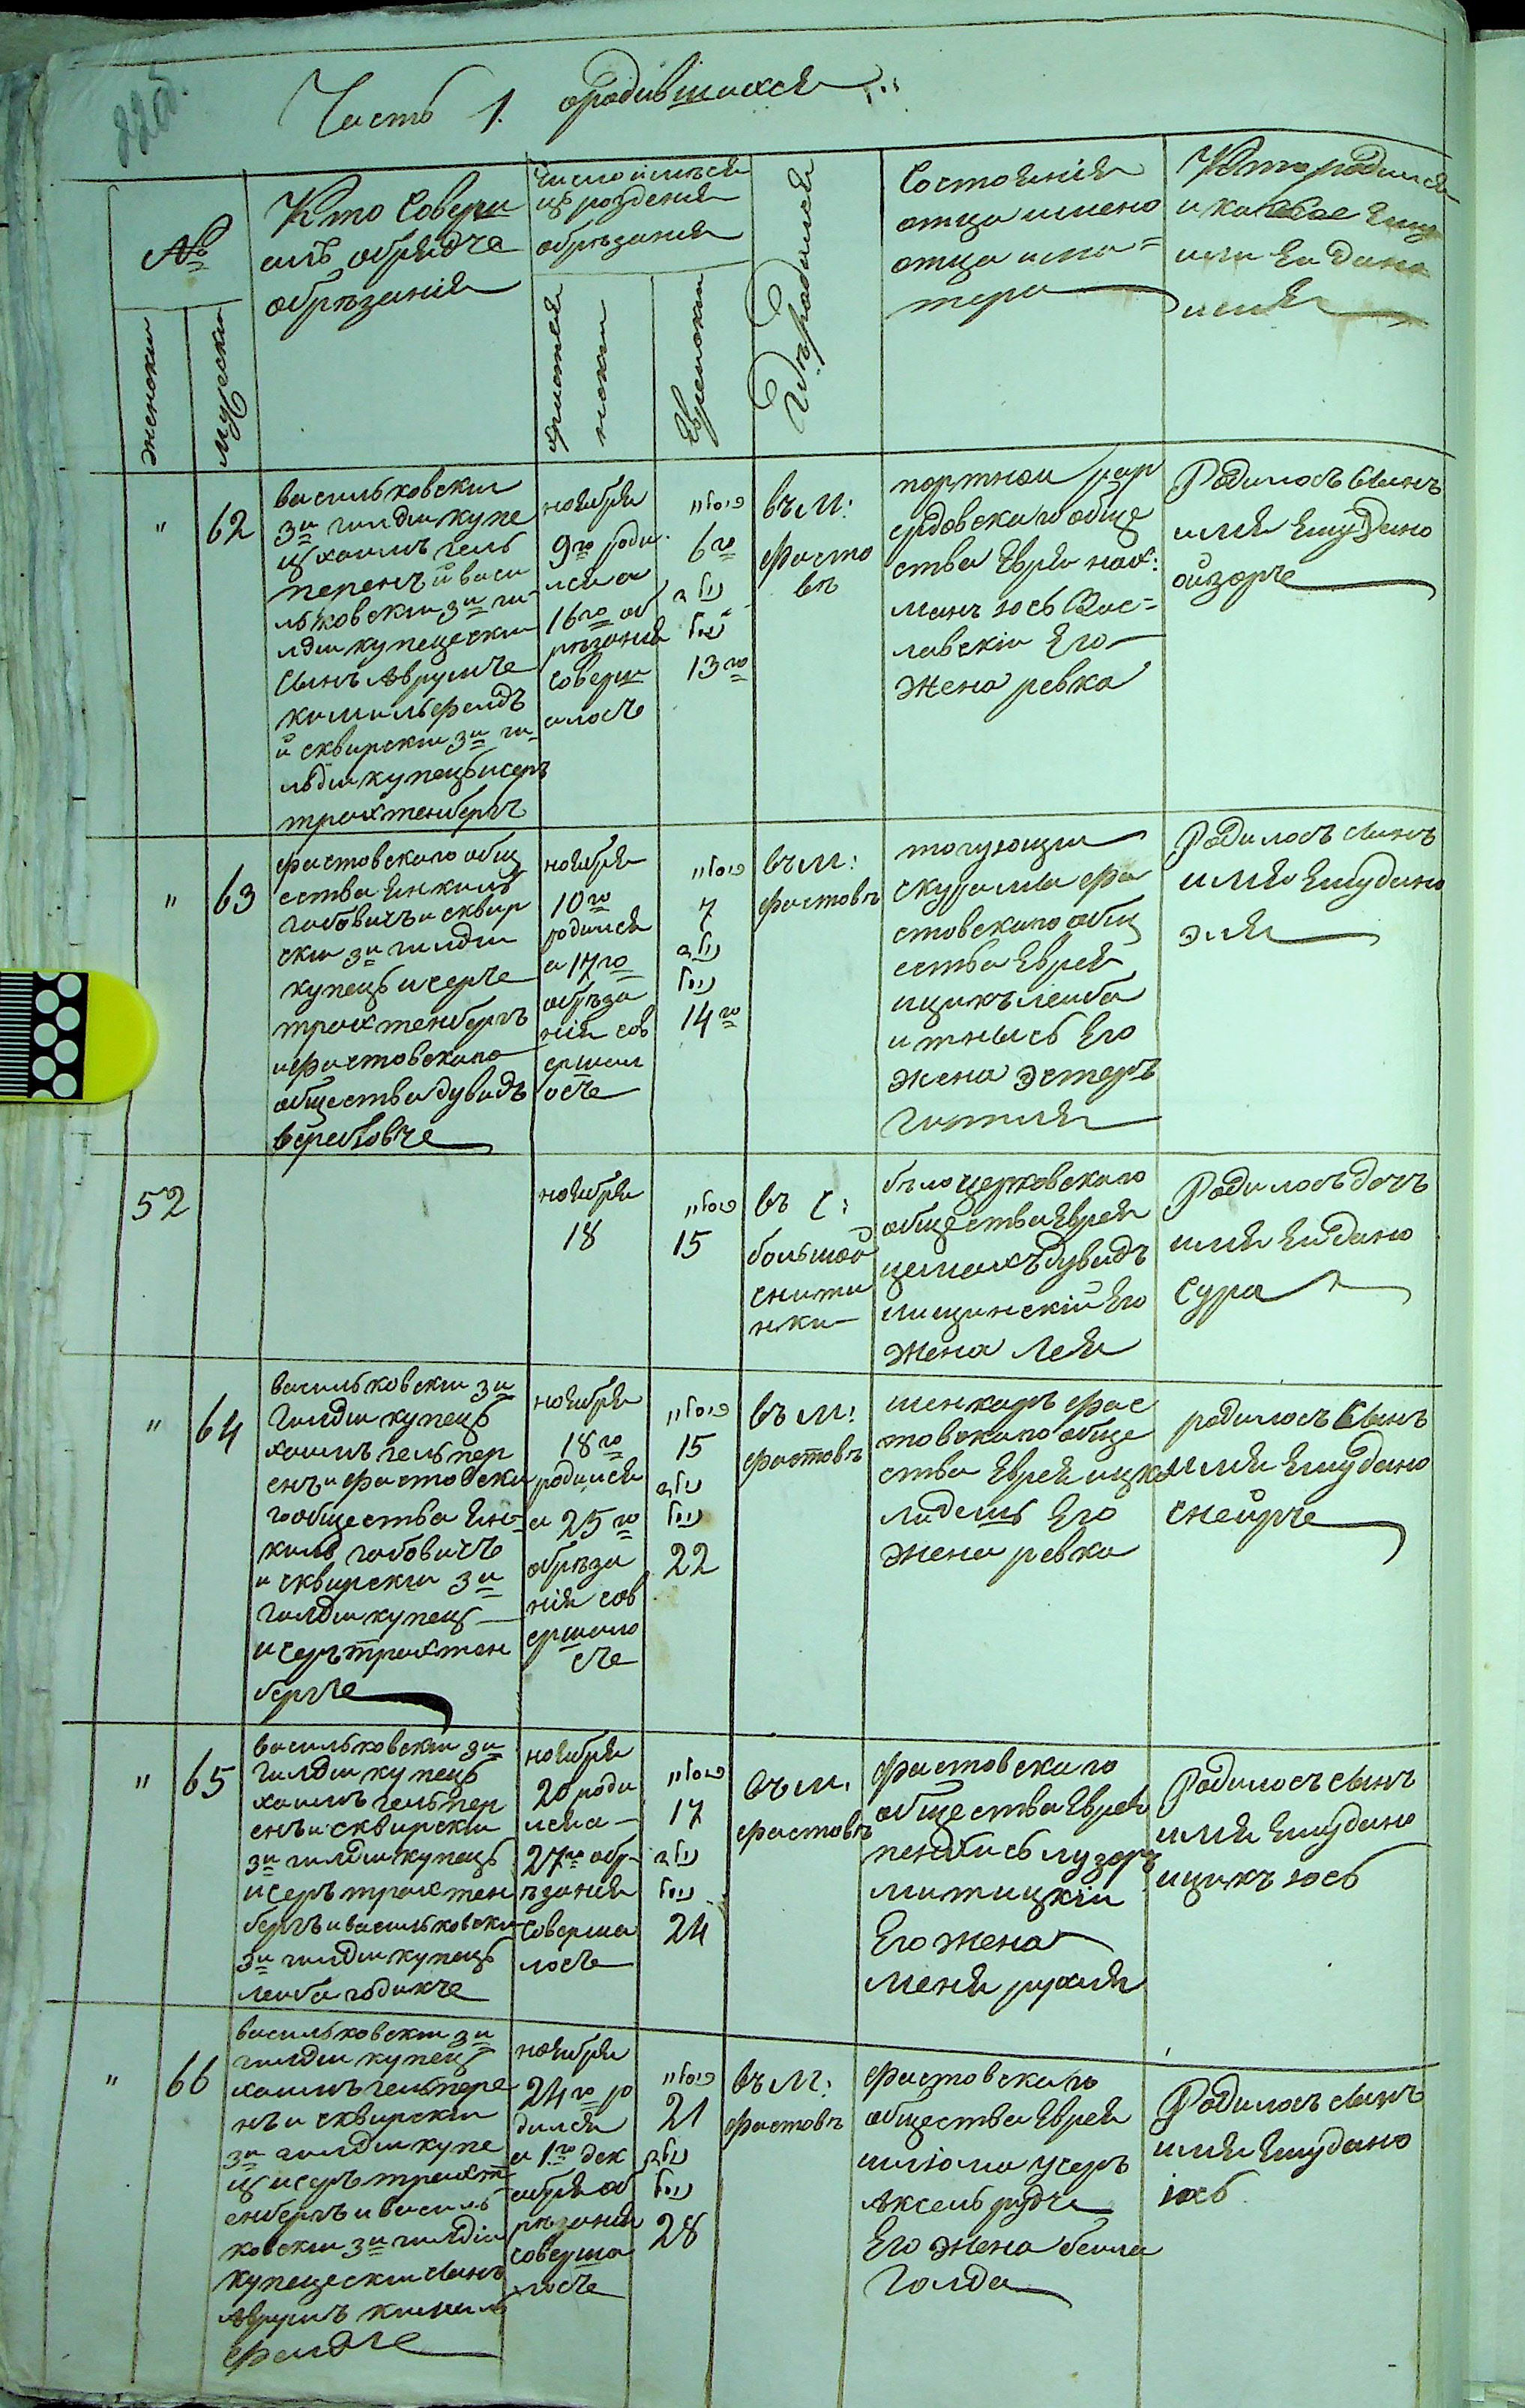 Часть 1. о родившихся
№
женскии
мужскии
Кто Совери
илъ обрядъ
обрѣзанія
Число и мѣся
цъ рождения
обрѣзания
христия
нскии
Еврейскии
Гдѣ родился
Состоянія
отца имено
отца и ма=
тери
Кто родился
и какое Ему
или Ей дано
имя
"
62
васильковскии
3и гилдии купе
цъ хаимъ гель
перенъ и васи
льковскии 3и ги
лдии купеческии
Сынъ Аврумъ
кимельфелдъ
и сквирскии 3и ги
льдии купецъ исеръ
трахтенбергъ
ноября
9го роди
лся а
16го об
рѣзания
соверш
илосъ
6го
13го
въ м:
фасто
вѣ
портнои
обще
ства Еврея нах:
манъ юсь Вас=
лавскіи Его
жена ревка
Родилосъ Сынъ
имя Ему дано
ойзеръ
"
63
фастовского общ
ества Янкиль
габовичъ и сквир
скии 3и гилдии
купецъ исеръ
трахтенбергъ
и фастовского
общества дувидъ
ноября
10го
родился
а 17го
обрѣза
нія сов
ершил
осъ
7
14го
въ м:
фастовѣ
торгующии
скурами фа
стовского общ
ества Еврей
ицикъ леиба
Его
жена Эстеръ
гитля
Родилосъ сынъ
имя Ему дано
эля
52
ноября
18
15
въ с:
большой
снити
нки
бѣлоцерковского
общества Еврей
дувидъ
Его
жена Лея
Родилосъ дочъ
имя Ей дано
Сура
"
64
васильковскии 3и
гилдии купецъ
хаимъ гельпер
енъ и фастовски
го общества Ян
киль габовичъ
и сквирскии 3и
гилдии купецъ
исеръ трахтен
бергъ
ноября
18го
родился
а 25го
обрѣза
нія сов
ершило
съ
15
22
въ м:
фастовѣ
шенкаръ фас
товского обще
ства Еврей ицко
Его
жена ревка
родилосъ Сынъ
имя Ему дано
снеиръ
"
65
васильковскии 3и
гилдии купецъ
хаимъ гельпер
енъ и сквирскии
3и гилдии купецъ
исеръ трахтен
бергъ и васильковски
3и гилдии купецъ
леиба годикъ
ноября
20 роди
лся а
27го обр
ѣзания
соверши
лосъ
17
24
въ м:
фастовѣ
фастовского
общества Еврей
лузеръ
Его жена
меня рухля
Родилосъ сынъ
имя Ему дано
ицикъ юсь
"
66
васильковскии 3и
гилдии купецъ
хаимъ гельпере
нъ и сквирскии
3и гилдии купе
цъ исеръ трахт
енбергъ и василь
ковскии 3и гилдіи
купецескии сынъ
Аврумъ кимель
фелдъ
ноября
24го ро
дился
а 1го дек
абря об
рѣзания
соверши
лосъ
21
28
въ м:
фастовѣ
фастовского
общества Еврей
шліома усеръ
Аксельрудъ
Его жена беила
голда
Родилосъ сынъ
имя Ему дано
іось